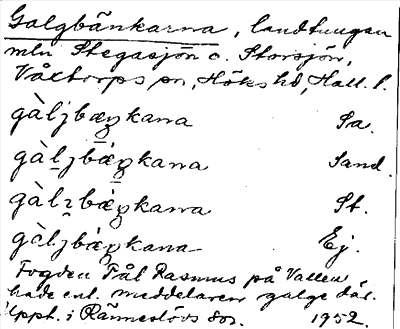 Galgbänkarna, landtungan
mln Stegasjön o. Storsjön,
Våxtorps sn, Höks hd, Hall. l.
gàlʒbæŋkana Sa.
gàlʒbæ̀ŋkana Sand.
gàlʒbæ̀ŋkana St.
gàlʒbæ̀ŋkana Ej.
Fogden Pål Rasmus på Vallen
hade enl. meddelaren galge där.
Uppt. i Ränneslövs sn. 1952.